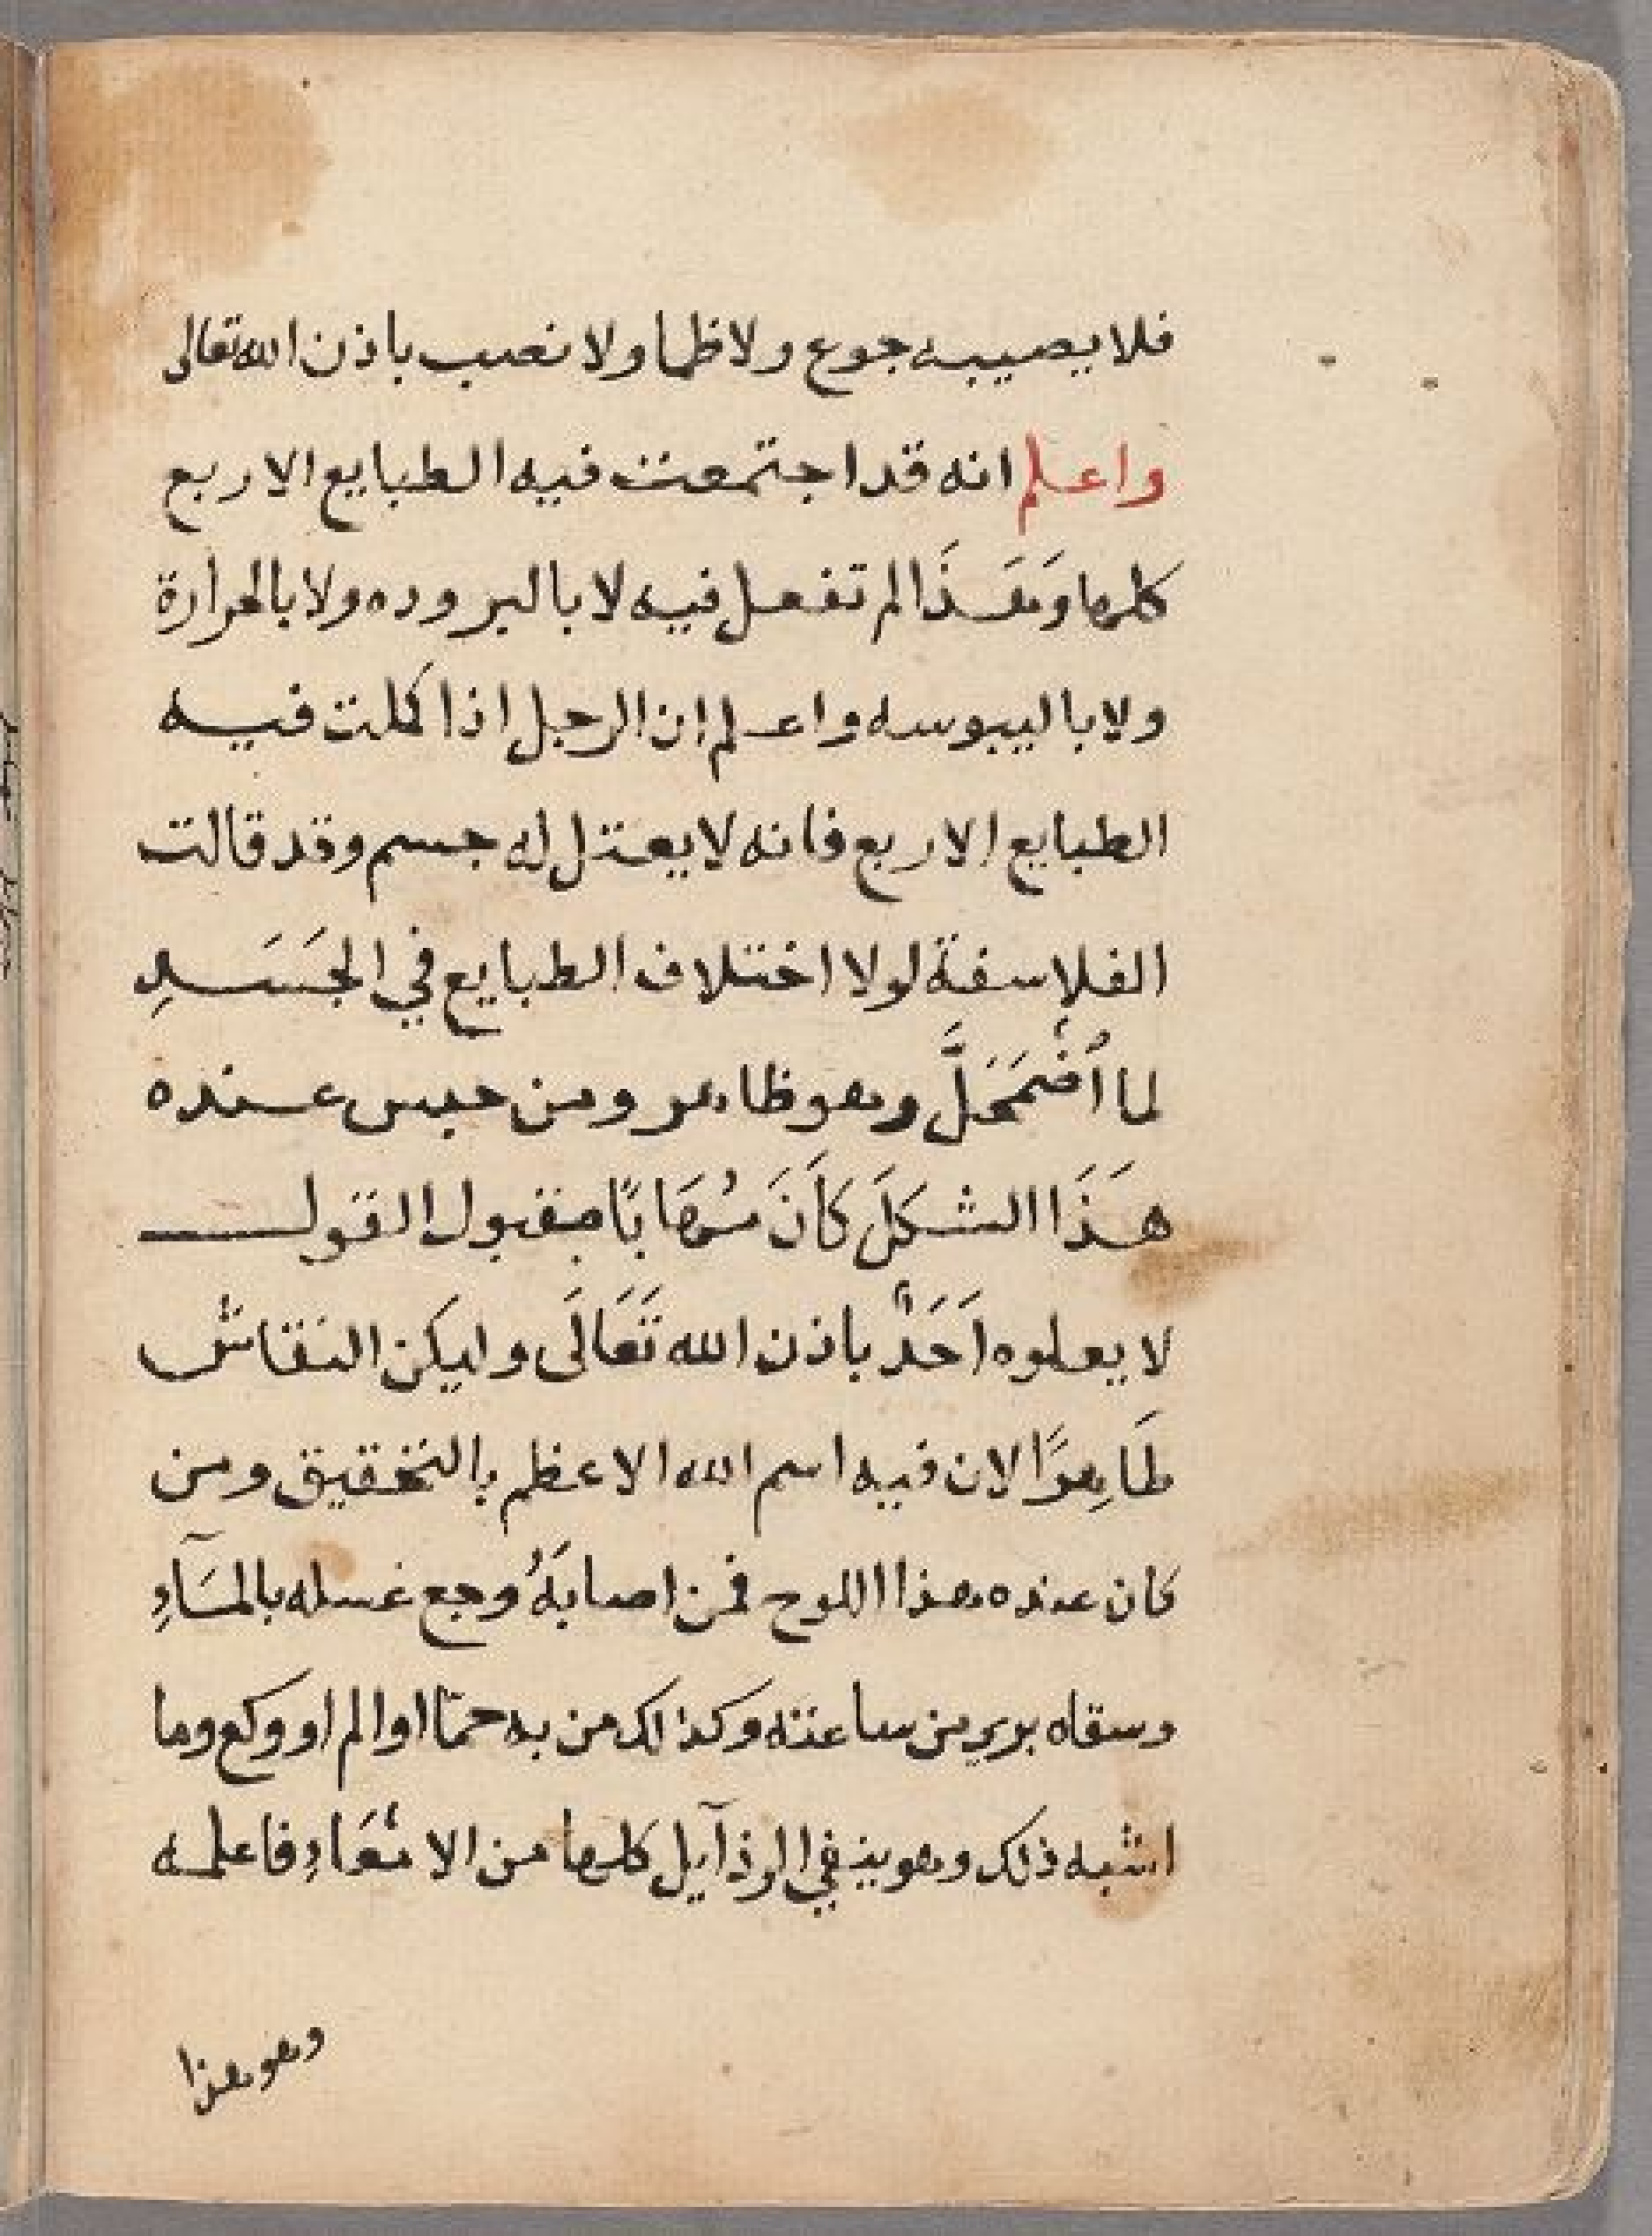 فلا يصيبه جوع ولا ظما ولا نصب باذن الله تعالى
واعلم انه قد اجتمعت فيه الطبايع الاربع
كلها وَهَذَا لم تفعل فيه لا بالبروده ولا بالحرارة
ولا باليبوسه واعلم ان الرجل اذا كملت فيه
الطبايع الاربع فانه لا يعتل له جسم وقد قالت
الفلاسفة لولا اختلاف الطبايع في الجَسَدِ
لما اُضْمَحَلَّ وهو ظاهر ومن حبس عنده
هَذَا الشكلَ كَانَ مُهَابًا مقبول القول
لا يعلوه اَحَدٌ باذن الله تَعَالَى وليكن النقاش
طَاهِرًا لان فيه اسم الله الاعظم بالتحقيق ومن
كان عنده هذا اللوح فمن اصابَهُ وجع غسله بالمَآءِ
وسقاه بري من ساعته وكذالك من به حمّا او الم او وكع وما
اشبه ذلك وهو ينفي الرذآيل كلها من الامْعَاءِ فاعلمه
وهو هذا